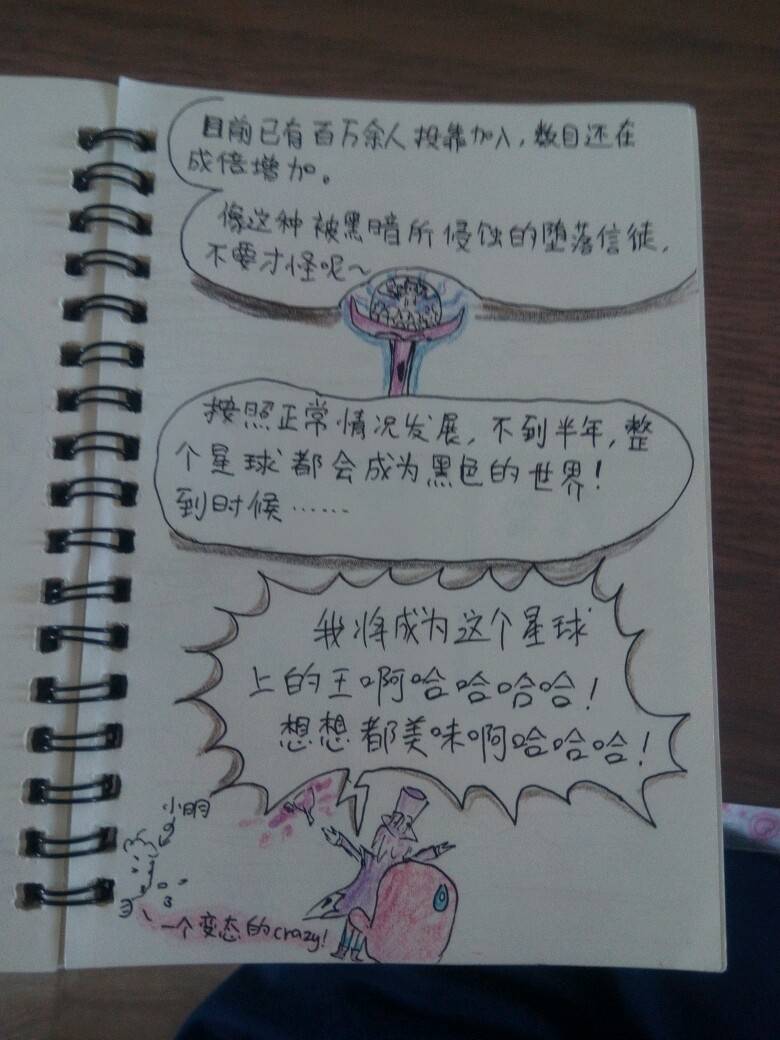 目前已有百万余人投靠加入,数目还在
成倍增加。
像这种被黑暗所侵蚀的堕落信徒,
不要才怪呢~
按照正常情况发展,不到半年,整
个星球都会成为黑色的世界!
到时候……
我将成为这个星球
上的王啊哈哈哈哈!
想想都美味啊哈哈哈!
小明
一个变态的crazy!